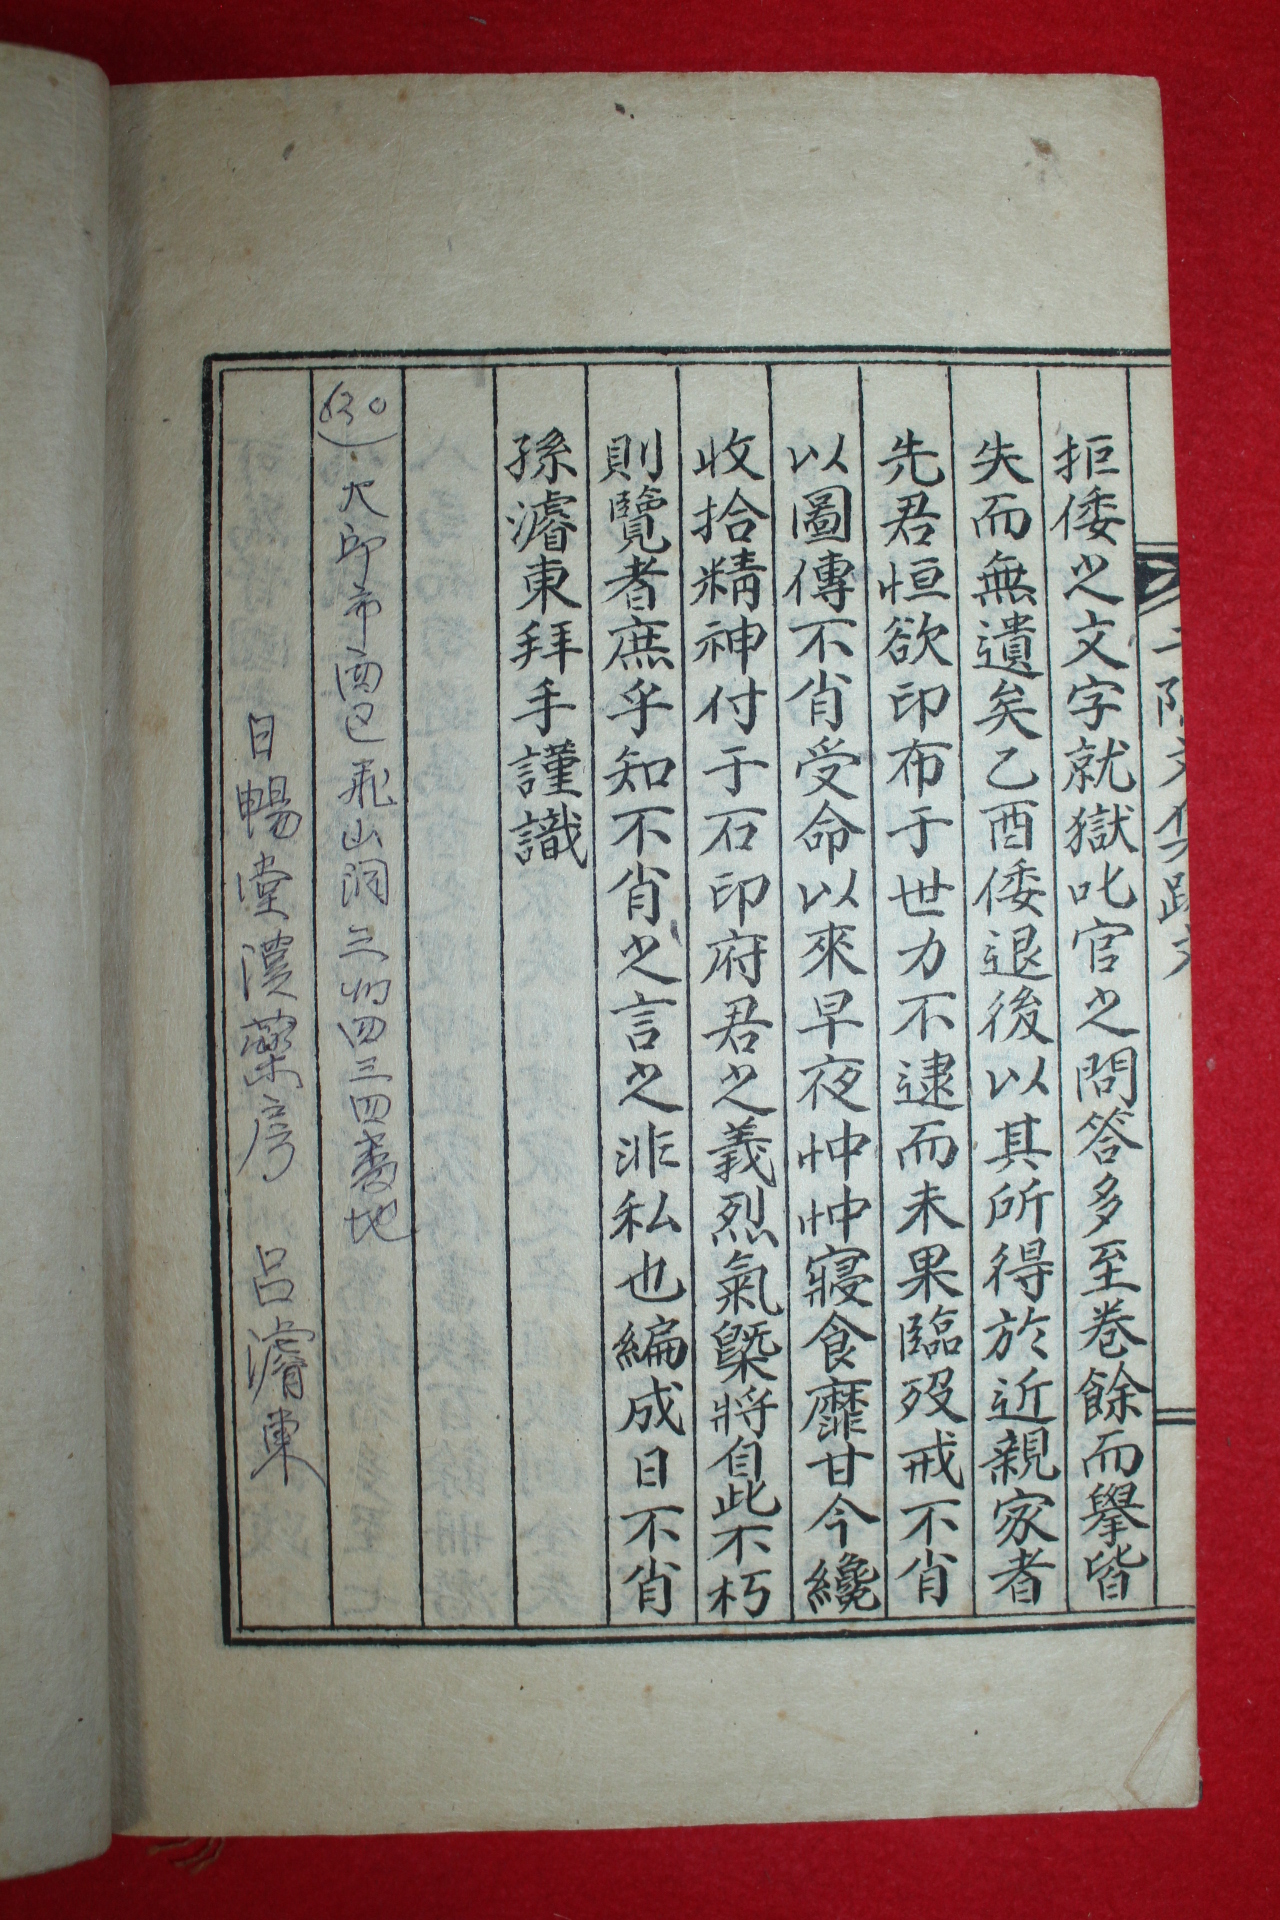 拒倭之文字就獄叱官之問答多至卷餘而擧皆
失而無遺矣乙酉倭退後以其所得於近親家者
先君恒欲印布于世力不逮而未果臨歿戒不肖
以圖傳不肖受命以來早夜忡忡寢食靡甘今纔
收拾精神付于石印府君之義烈氣槩將自此不朽
則覽者庶乎知不肖之言之非私也編成日不肖
孫濬東拜手謹識
大邱市西區飛山洞三四三四番地
日暢堂漢藥房 呂濬東